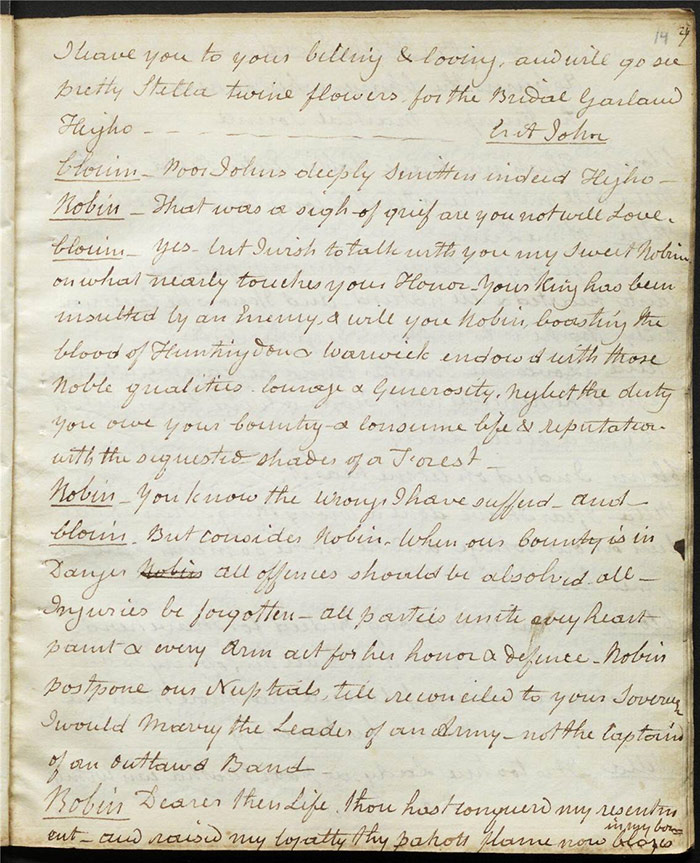 14 29
I leave you to your billing & loving, and will go see
pretty Stella twine flowers for the Bridal Garland
Heigho — — — — — — — Exit John
Clorin – Poor Johns deeply smitten indeed Heigho –
Robin – That was a sigh of grief are you not well Love.
Clorin – yes – but I wish to talk with you my Sweet Robin,
on what nearly touches your Honor – Your King has been
insulted by an Enemy, & will you Robin, boasting the
blood of Huntingdon & Warwick endowd with those
Noble qualities Courage & Generosity, neglect the duty
you owe your Country & consume life & reputation
with the sequested shades of a Forest
Robin – You know the wrongs I have sufferd – and –
Clorin – But consider Robin, When our Country is in
Danger Robin all offences should be absolved all –
Injuries be forgotten – all parties unite every heart
pant & every Arm act for her honor & defence – Robin
postpone our Nuptials, till reconciled to your Soverein
I would Marry the Leader of an Army – not the Captain
of an outlawd Band
Robin Dearer then Life, thou hast conquerd my resentm
in my bo=
ent – and raised my loyalty thy patriot flame now blazes